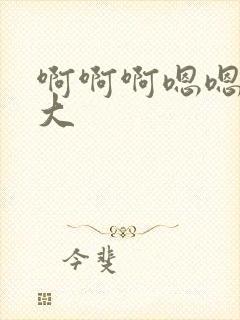 啊啊啊嗯嗯
大
今斐